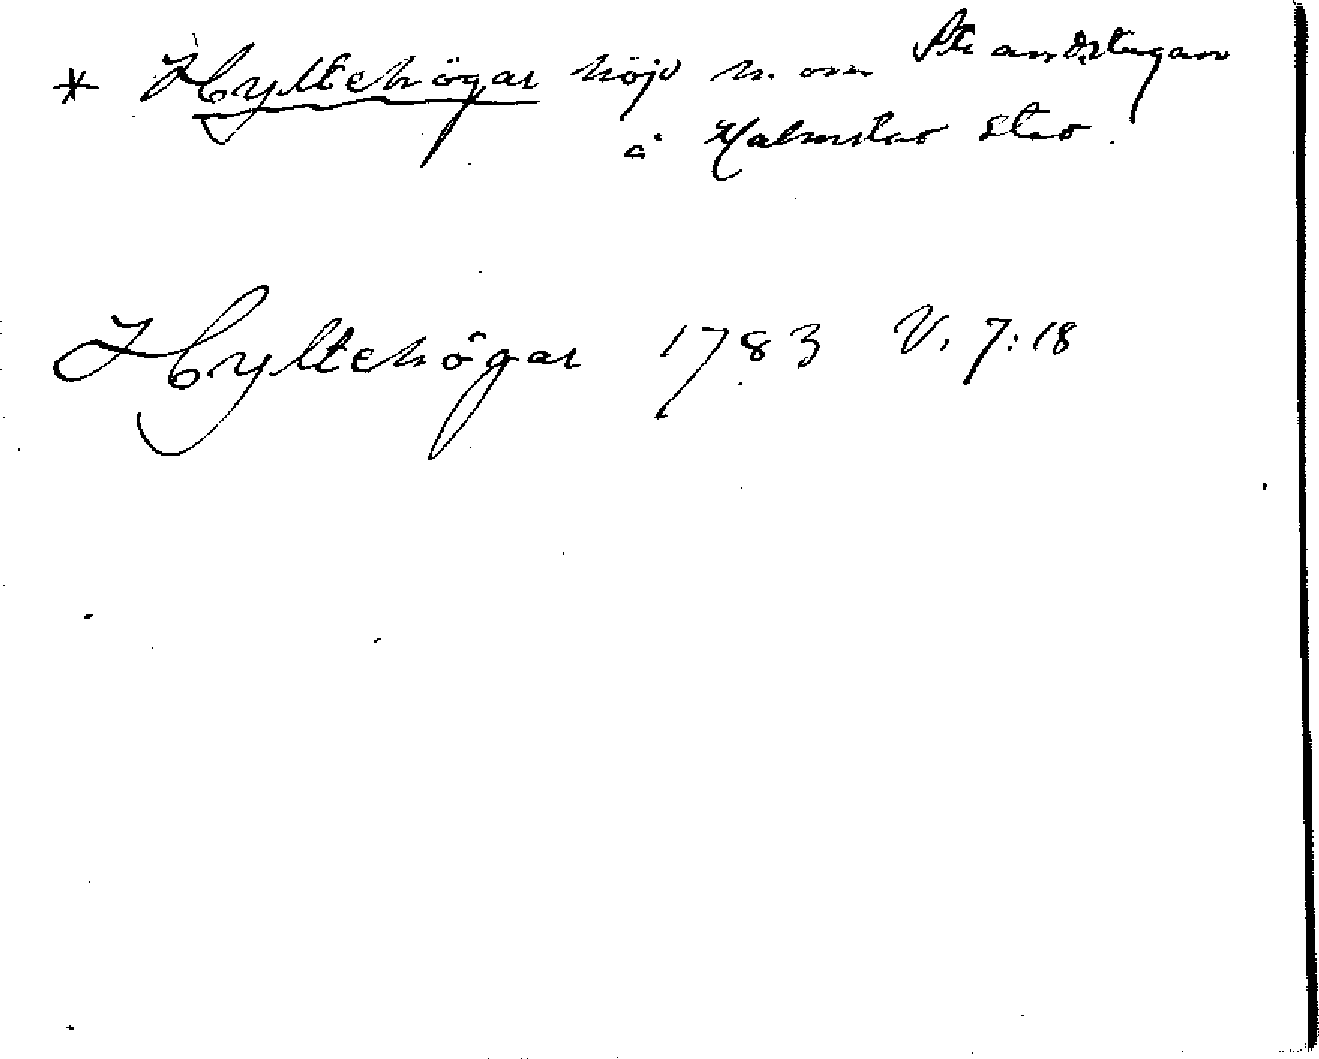 * Hyltehögar höjd n. om Strandstugan
å Halmstad stad.
Hyltehögar 1783 V. 7:18